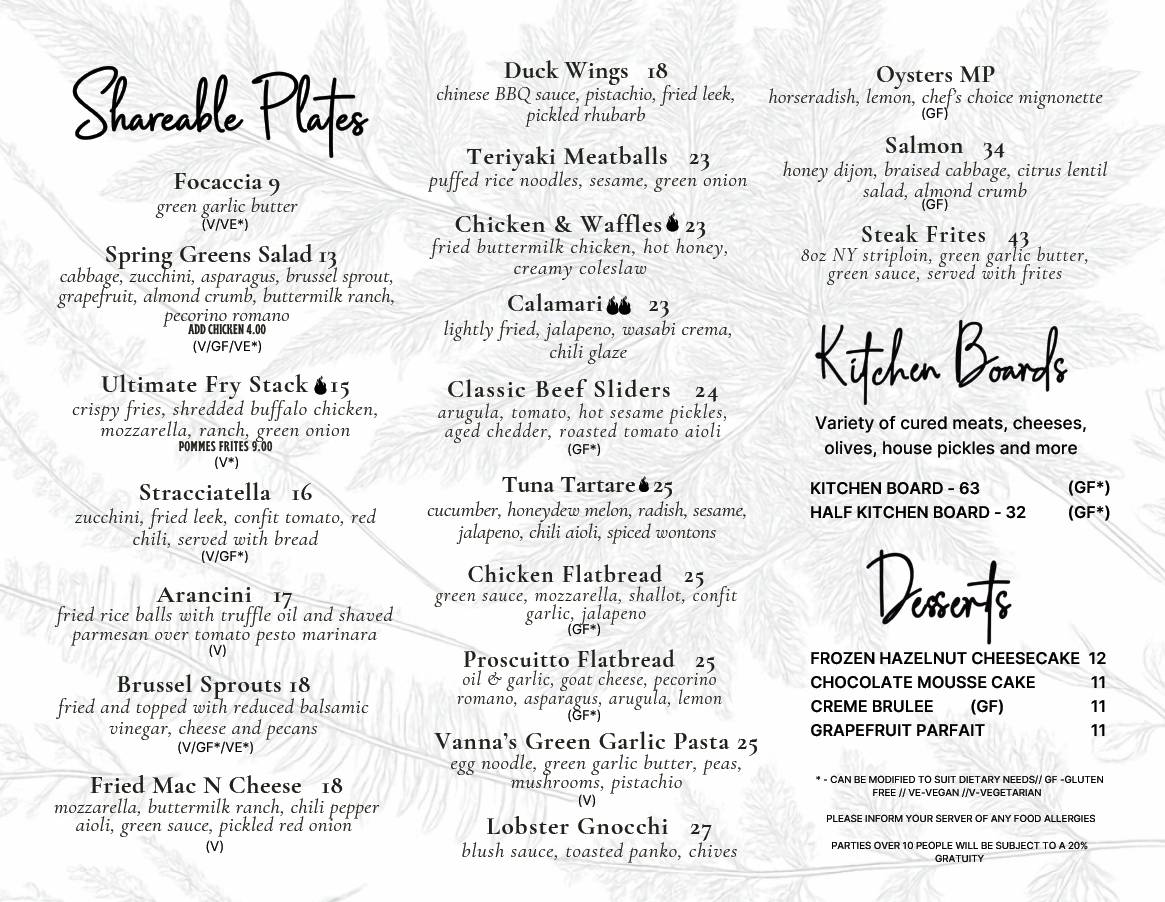 Shareable Plates
Focaccia 9
green garlic butter
(V/VE*)
Spring Greens Salad 13
cabbage, zucchini, asparagus, brussel sprout,
grapefruit, almond crumb, buttermilk ranch,
pecorino romano
ADD CHICKEN 4.00
(V/GF/VE*)
Ultimate Fry Stack 15
crispy fries, shredded buffalo chicken,
mozzarella, ranch, green onion
POMMES FRITES 9.00
(V*)
Stracciatella 16
zucchini, fried leek, confit tomato, red
chili, served with bread
(V/GF*)
Arancini 17
fried rice balls with truffle oil and shaved
parmesan over tomato pesto marinara
(V)
Brussel Sprouts 18
fried and topped with reduced balsamic
vinegar, cheese and pecans
(V/GF*/VE*)
Fried Mac N Cheese 18
mozzarella, buttermilk ranch, chili pepper
aioli, green sauce, pickled red onion
(V)
Duck Wings 18
chinese BBQ sauce, pistachio, fried leek,
pickled rhubarb
Teriyaki Meatballs 23
puffed rice noodles, sesame, green onion
Chicken & Waffles 23
fried buttermilk chicken, hot honey,
creamy coleslaw
Calamari 23
lightly fried, jalapeno, wasabi crema,
chili glaze
Classic Beef Sliders 24
arugula, tomato, hot sesame pickles,
aged chedder, roasted tomato aioli
(GF*)
Tuna Tartare 25
cucumber, honeydew melon, radish, sesame,
jalapeno, chili aioli, spiced wontons
Chicken Flatbread 25
green sauce, mozzarella, shallot, confit
garlic, jalapeno
(GF*)
Proscuitto Flatbread 25
oil & garlic, goat cheese, pecorino
romano, asparagus, arugula, lemon
(GF*)
Vanna's Green Garlic Pasta 25
egg noodle, green garlic butter, peas,
mushrooms, pistachio
(V)
Lobster Gnocchi 27
blush sauce, toasted panko, chives
Oysters MP
horseradish, lemon, chef's choice mignonette
(GF)
Salmon 34
honey dijon, braised cabbage, citrus lentil
salad, almond crumb
(GF)
Steak Frites 43
8oz NY striploin, green garlic butter,
green sauce, served with frites
Kitchen Boards
Variety of cured meats, cheeses,
olives, house pickles and more
KITCHEN BOARD - 63 (GF*)
HALF KITCHEN BOARD - 32 (GF*)
Desserts
FROZEN HAZELNUT CHEESECAKE 12
CHOCOLATE MOUSSE CAKE 11
CREME BRULEE (GF) 11
GRAPEFRUIT PARFAIT 11
* - CAN BE MODIFIED TO SUIT DIETARY NEEDS// GF -GLUTEN
FREE // VE-VEGAN //V-VEGETARIAN
PLEASE INFORM YOUR SERVER OF ANY FOOD ALLERGIES
PARTIES OVER 10 PEOPLE WILL BE SUBJECT TO A 20%
GRATUITY